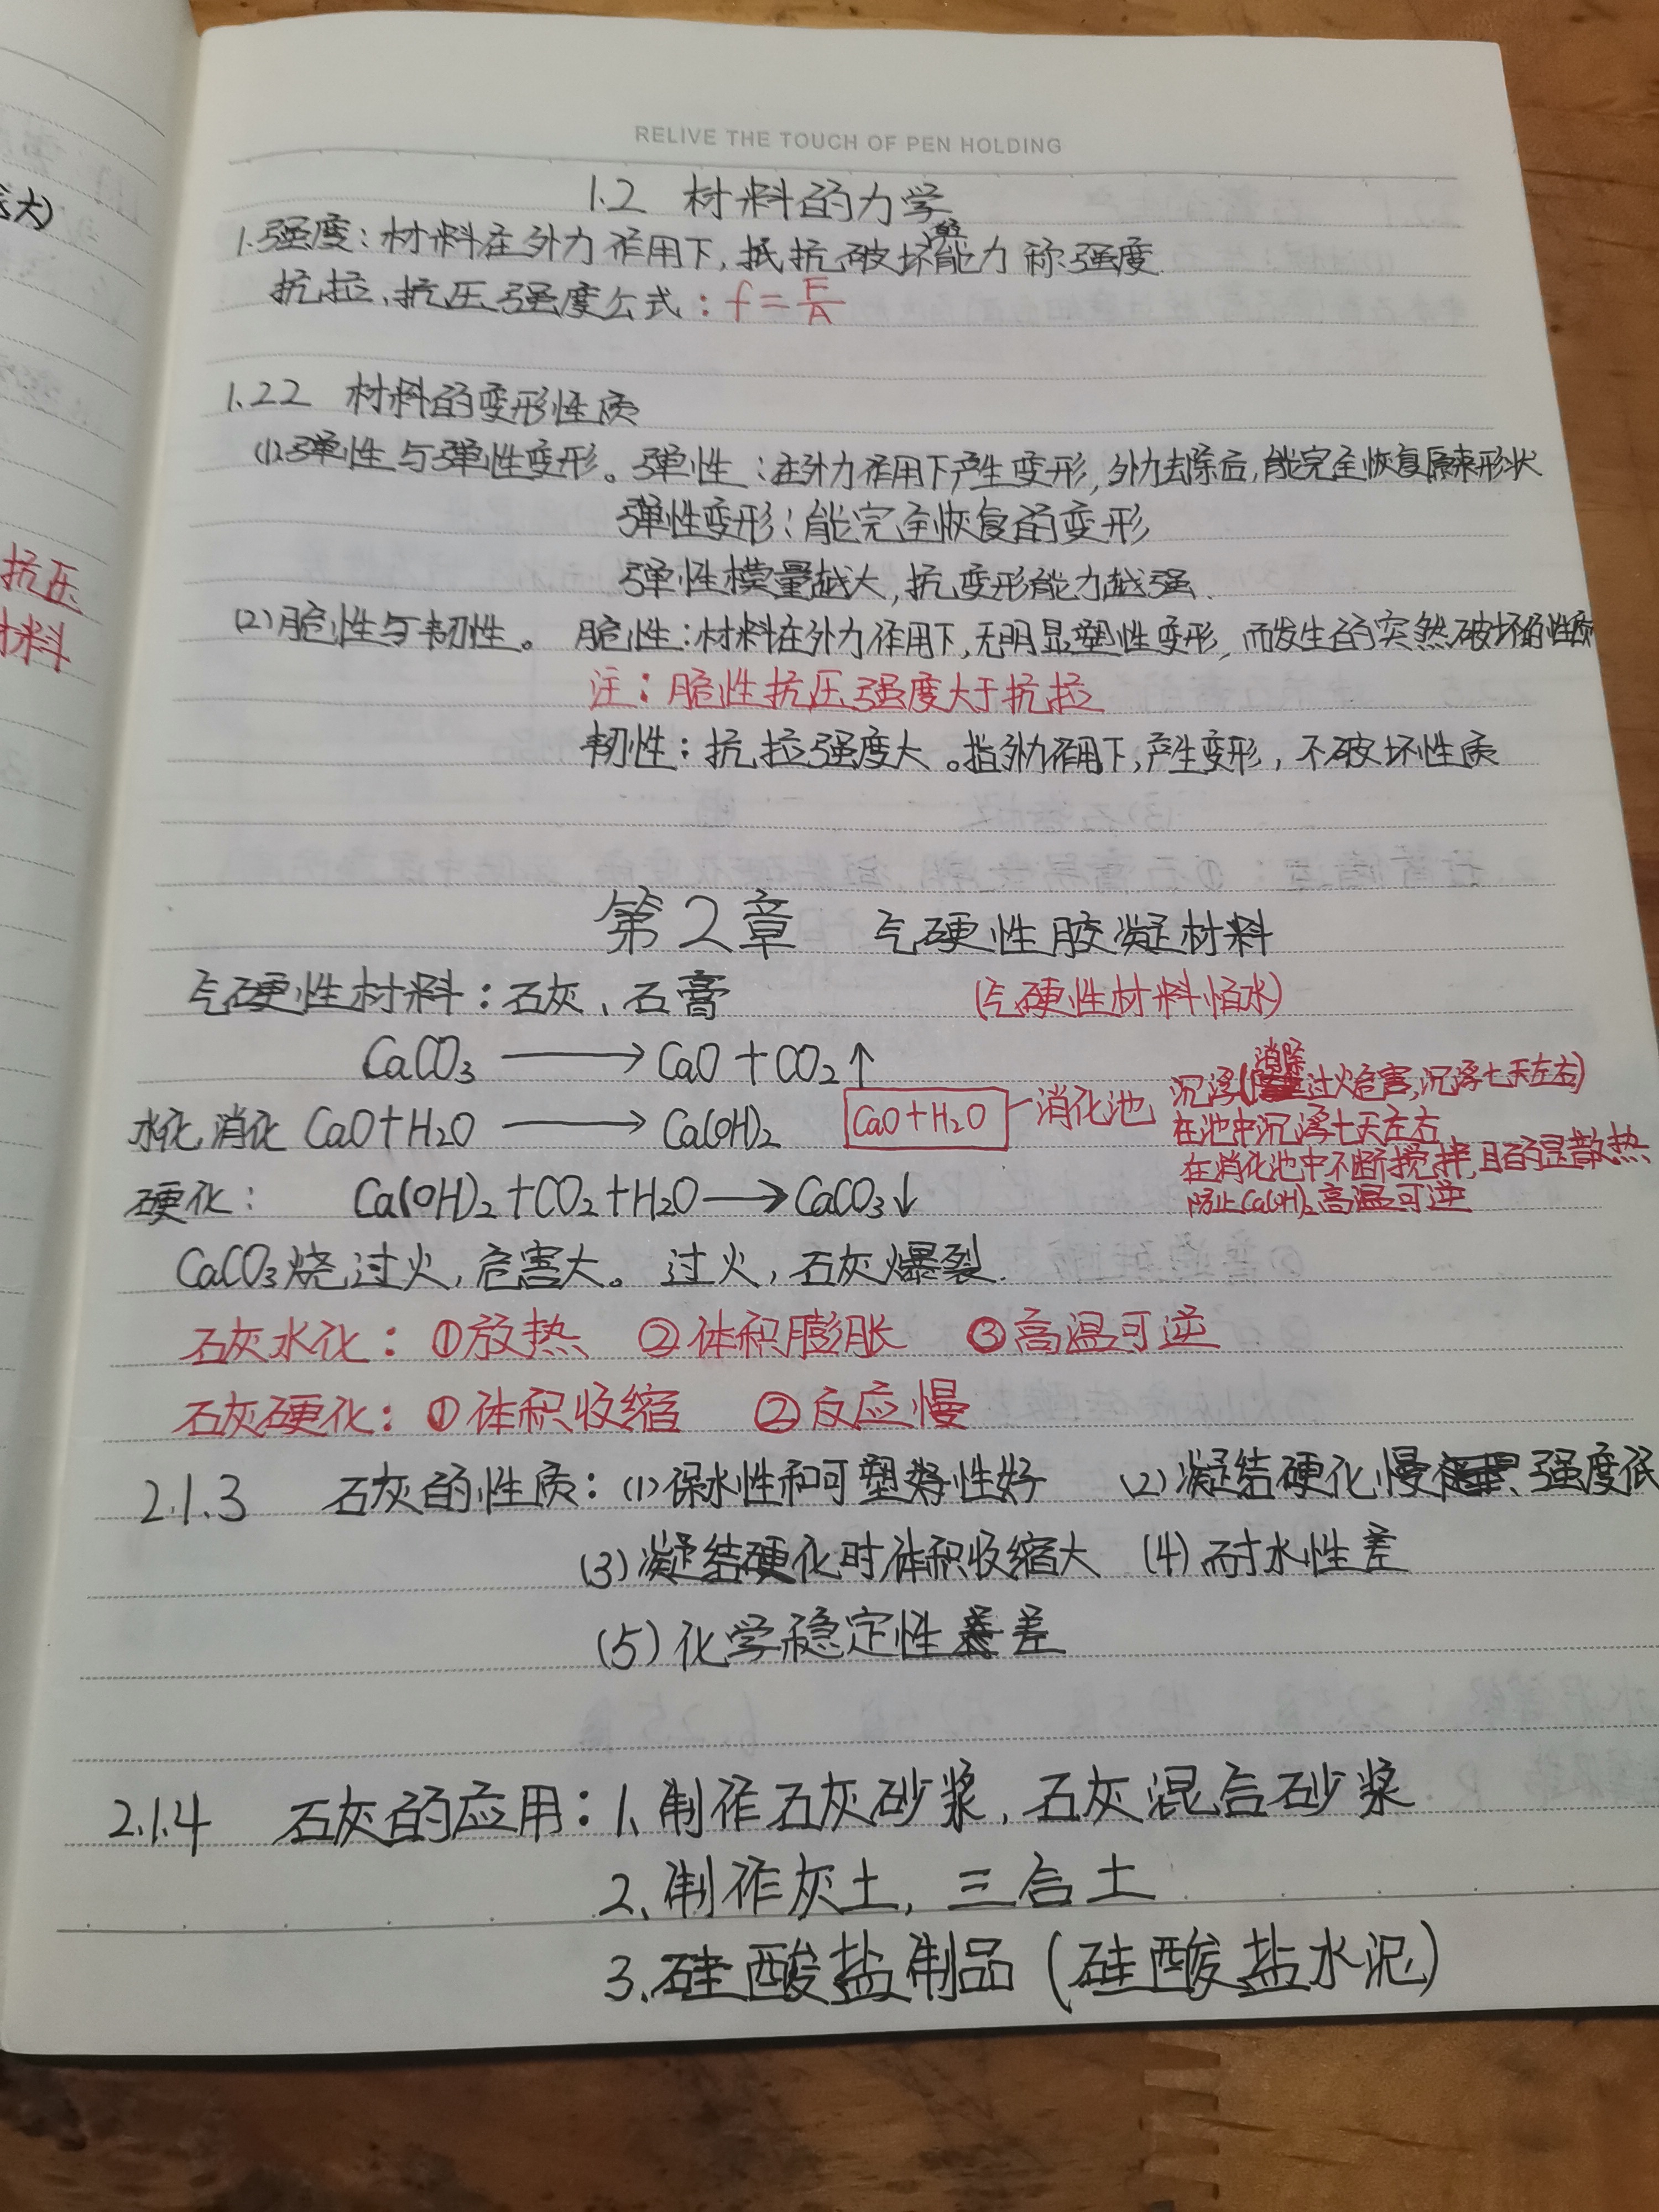 RELIVE THE TOUCH OF PEN HOLDING
1.2 材料的力学
1.强度：材料在外力作用下，抵抗破坏能力称强度.
抗拉、抗压强度公式：f=F/A
1.22 材料的变形性质
(1)弹性与弹性变形。弹性：在外力作用下产生变形，外力去除后，能完全恢复原来形状
弹性变形：能完全恢复的变形
弹性模量越大，抗变形能力越强.
(2)脆性与韧性。 脆性：材料在外力作用下，无明显塑性变形，而发生的突然破坏的性质
注：脆性抗压强度大于抗拉
韧性：抗拉强度大。指外力作用下，产生变形，不破坏性质
第2章 气硬性胶凝材料
气硬性材料：石灰、石膏 (气硬性材料怕水)
CaCO₃ ⟶ CaO+CO₂↑
水化 消化 CaO+H₂O ⟶ Ca(OH)₂
CaO+H₂O 消化池
沉浮(消除过火危害，沉浮七天左右)
在池中沉浮七天左右
在消化池中不断搅拌，目的是散热
防止Ca(OH)₂高温可逆
硬化： Ca(OH)₂+CO₂+H₂O⟶CaCO₃↓
CaCO₃烧过火，危害大。过火，石灰爆裂.
石灰水化：①放热 ②体积膨胀 ③高温可逆
石灰硬化：①体积收缩 ②反应慢
2.1.3 石灰的性质：(1)保水性和可塑性好 (2)凝结硬化慢、强度低
(3)凝结硬化时体积收缩大 (4)耐水性差
(5)化学稳定性差
2.1.4 石灰的应用：1.制作石灰砂浆，石灰混合砂浆
2.制作灰土，三合土
3.硅酸盐制品(硅酸盐水泥)
大)
抗压
材料